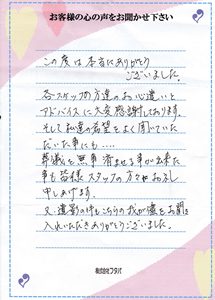 お客様の心の声をお聞かせ下さい
この度は本当にありがとう
ございました。
各スタッフの方達のお心遣いと
アドバイスに大変感謝しております。
そして私達の希望をよく聞いていた
だいた事にも....
葬儀を無事済ませる事が出来た
事も皆様スタッフの方々のおかげと
申しあげます。
又、遺影の件もこちらの我が儘をお聞き
入れいただきありがとうございました。
株式会社フタバ